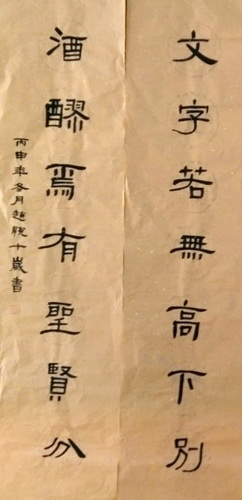 文字若無高下別
酒醪焉有聖賢分
丙申年冬月趙駿十歲書